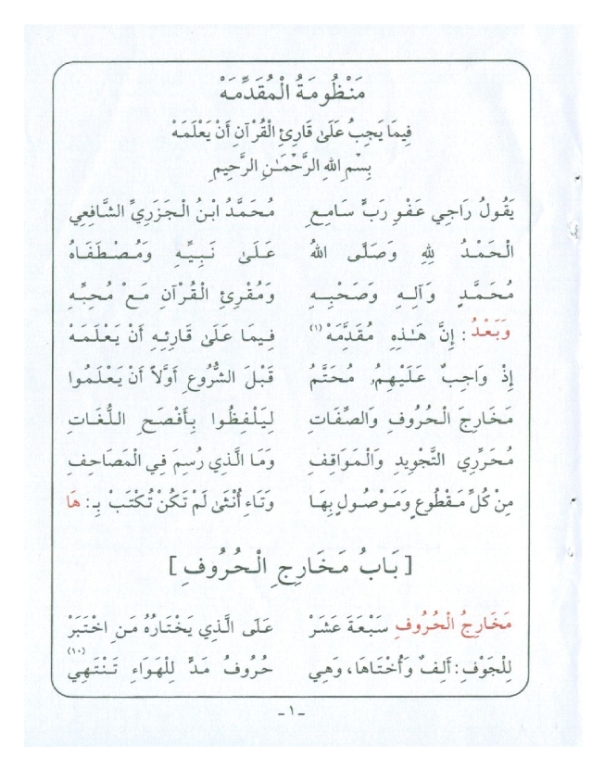 مَنْظُومَةُ الْمُقَدِّمَهْ
فِيمَا يَجِبُ عَلَىٰ قَارِئِ الْقُرْآنِ أَنْ يَعْلَمَهْ
بِسْمِ اللهِ الرَّحْمَـٰنِ الرَّحِيمِ
يَقُولُ رَاجِي عَفْوِ رَبٍّ سَامِعِ مُحَمَّدُ ابْنُ الْجَزَرِيِّ الشَّافِعِي
الْحَمْدُ لِلهِ وَصَلَّى اللهُ عَلَىٰ نَبِيِّهِ وَمُصْطَفَاهُ
مُحَمَّدٍ وَآلِهِ وَصَحْبِهِ وَمُقْرِئِ الْقُرْآنِ مَعْ مُحِبِّهِ
وَبَعْدُ: إِنَّ هَـٰذِهِ مُقَدِّمَهْ (١) فِيمَا عَلَىٰ قَارِئِهِ أَنْ يَعْلَمَهْ
إِذْ وَاجِبٌ عَلَيْهِمُ مُحَتَّمُ قَبْلَ الشُّرُوعِ أَوَّلاً أَنْ يَعْلَمُوا
مَخَارِجَ الْحُرُوفِ وَالصِّفَاتِ لِيَلْفِظُوا بِأَفْصَحِ اللُّغَاتِ
مُحَرِّرِي التَّجْوِيدِ وَالْمَوَاقِفِ وَمَا الَّذِي رُسِمَ فِي الْمَصَاحِفِ
مِنْ كُلِّ مَقْطُوعٍ وَمَوْصُولٍ بِهَا وَتَاءِ أُنْثَىٰ لَمْ تَكُنْ تُكْتَبْ بِـ: هَا
[بَابُ مَخَارِجِ الْحُرُوفِ]
مَخَارِجُ الْحُرُوفِ سَبْعَةَ عَشَرْ عَلَى الَّذِي يَخْتَارُهُ مَنِ اخْتَبَرْ
لِلْجَوْفِ: أَلِفٌ وَأُخْتَاهَا، وَهِي حُرُوفُ مَدٍّ لِلْهَوَاءِ تَنْتَهِي (١٠)
-١-